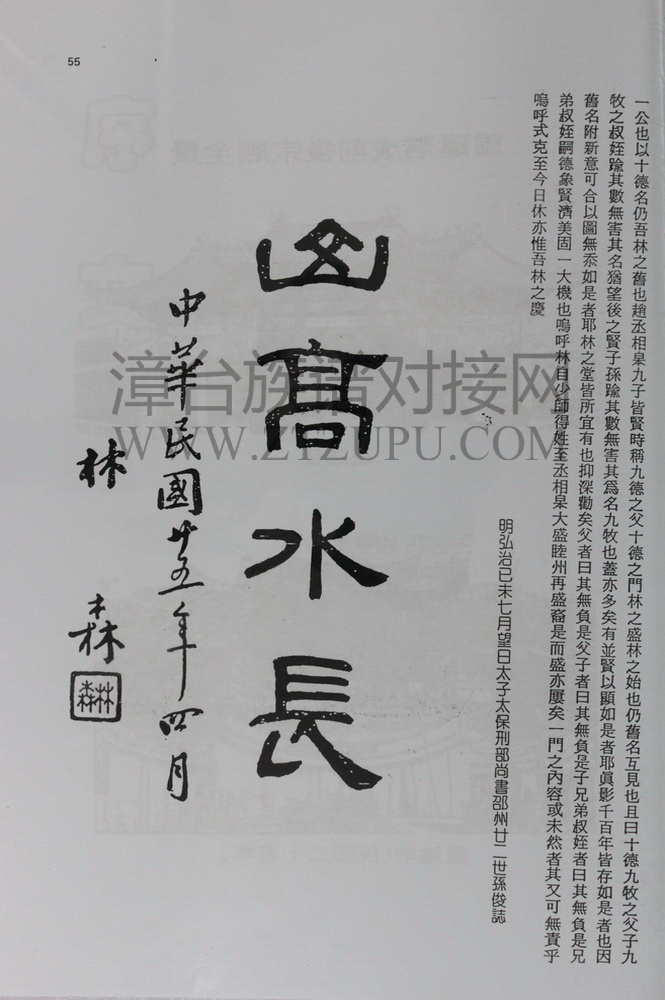 55
一公也以十德名仍吾林之舊也趙丞相臯九子皆賢時稱九德之父十德之門林之盛林之始也仍舊名互見也且曰十德九牧之父子九
牧之叔姪踰其數無害其名猶望後之賢子孫踰其數無害其爲名九牧也蓋亦多矣有並賢以顯如是者耶眞影千百年皆存如是者也因
舊名附新意可合以圖無忝如是者耶林之堂皆所宜有也抑深勸矣父者曰其無負是父子者曰其無負是子兄弟叔姪者曰其無負是兄
弟叔姪嗣德象賢濟美固一大機也嗚呼林自少師得姓至丞相臯大盛睦州再盛裔是而盛亦屢矣一門之內容或未然者其又可無責乎
嗚呼式克至今日休亦惟吾林之慶
明弘治己未七月望日太子太保刑部尚書邵州廿二世孫俊誌
山高水長
中華民國廿五年四月
林森
林森
漳台族谱对接网
WWW.ZTZUPU.COM